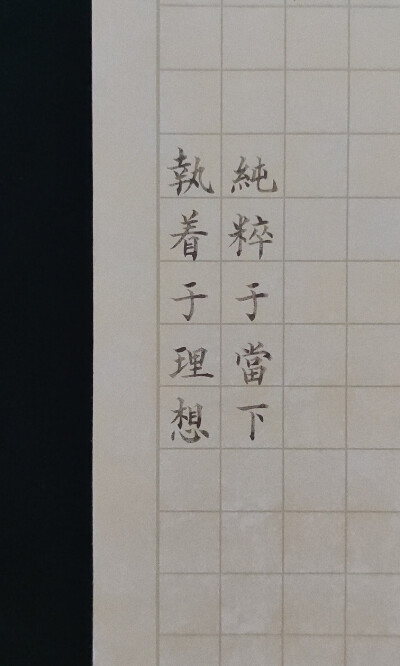 純粹于當下
執着于理想